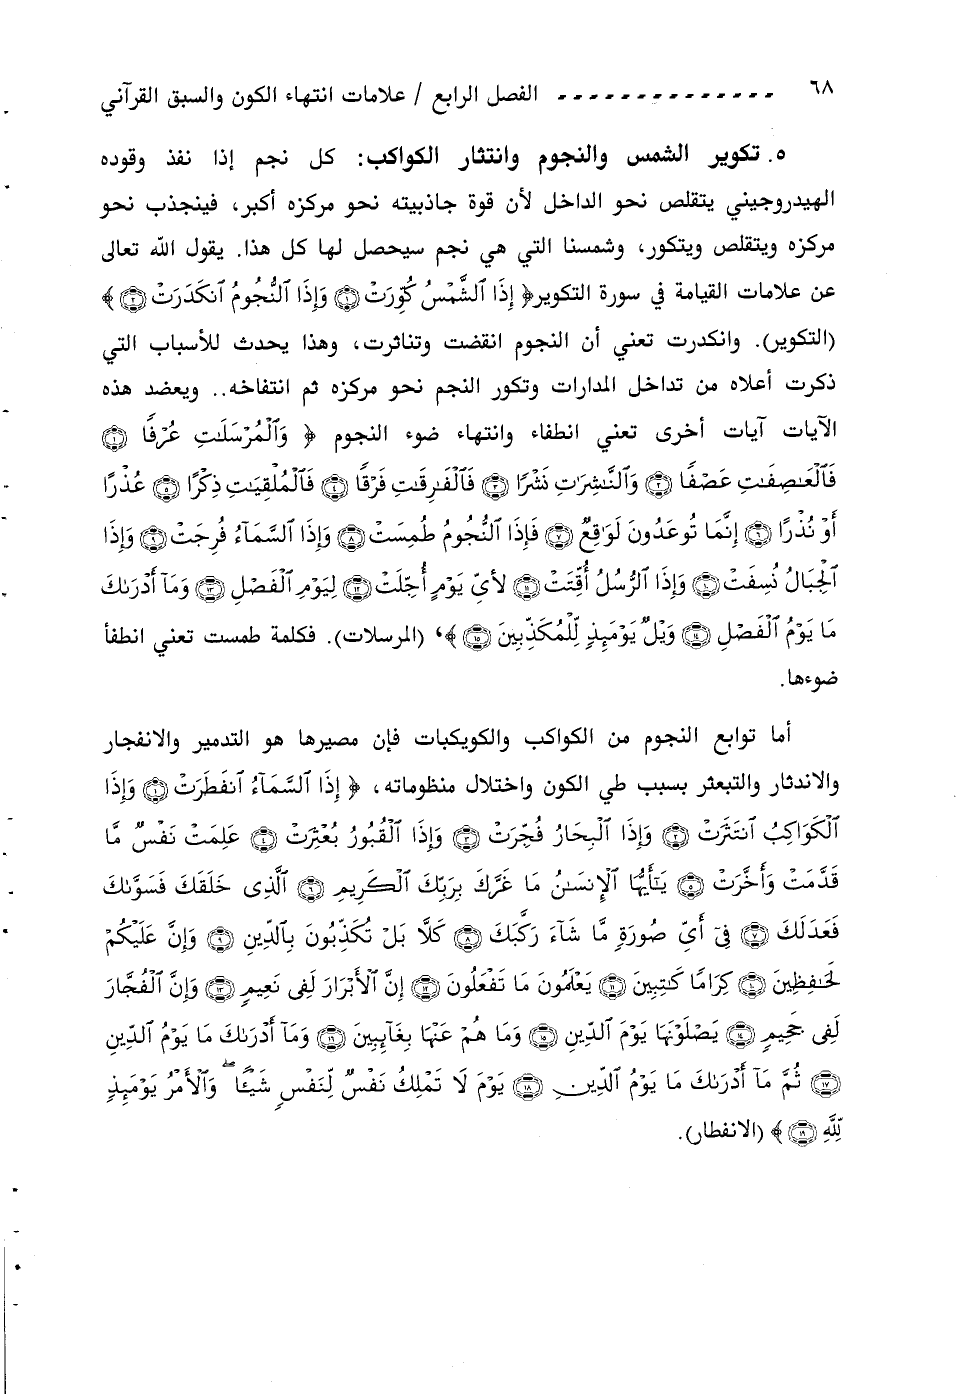 ٦٨ -------------- الفصل الرابع / علامات انتهاء الكون والسبق القرآني
٥. تكوير الشمس والنجوم وانتثار الكواكب: كل نجم إذا نفذ وقوده
الهيدروجيني يتقلص نحو الداخل لأن قوة جاذبيته نحو مركزه أكبر، فينجذب نحو
مركزه ويتقلص ويتكور، وشمسنا التي هي نجم سيحصل لها كل هذا. يقول الله تعالى
عن علامات القيامة في سورة التكوير﴿ إِذَا ٱلشَّمْسُ كُوِّرَتْ ۝١ وَإِذَا ٱلنُّجُومُ ٱنكَدَرَتْ ۝٢ ﴾
(التكوير). وانكدرت تعني أن النجوم انقضت وتناثرت، وهذا يحدث للأسباب التي
ذكرت أعلاه من تداخل المدارات وتكور النجم نحو مركزه ثم انتفاخه.. ويعضد هذه
الآيات آيات أخرى تعني انطفاء وانتهاء ضوء النجوم ﴿ وَٱلْمُرْسَلَـٰتِ عُرْفًا ۝١
فَٱلْعَـٰصِفَـٰتِ عَصْفًا ۝٢ وَٱلنَّـٰشِرَٰتِ نَشْرًا ۝٣ فَٱلْفَـٰرِقَـٰتِ فَرْقًا ۝٤ فَٱلْمُلْقِيَـٰتِ ذِكْرًا ۝٥ عُذْرًا
أَوْ نُذْرًا ۝٦ إِنَّمَا تُوعَدُونَ لَوَٰقِعٌ ۝٧ فَإِذَا ٱلنُّجُومُ طُمِسَتْ ۝٨ وَإِذَا ٱلسَّمَآءُ فُرِجَتْ ۝٩ وَإِذَا
ٱلْجِبَالُ نُسِفَتْ ۝١٠ وَإِذَا ٱلرُّسُلُ أُقِّتَتْ ۝١١ لِأَىِّ يَوْمٍ أُجِّلَتْ ۝١٢ لِيَوْمِ ٱلْفَصْلِ ۝١٣ وَمَآ أَدْرَىٰكَ
مَا يَوْمُ ٱلْفَصْلِ ۝١٤ وَيْلٌ يَوْمَئِذٍ لِّلْمُكَذِّبِينَ ۝١٥ ﴾، (المرسلات). فكلمة طمست تعني انطفأ
ضوءها.
أما توابع النجوم من الكواكب والكويكبات فإن مصيرها هو التدمير والانفجار
والاندثار والتبعثر بسبب طي الكون واختلال منظوماته، ﴿ إِذَا ٱلسَّمَآءُ ٱنفَطَرَتْ ۝١ وَإِذَا
ٱلْكَوَاكِبُ ٱنتَثَرَتْ ۝٢ وَإِذَا ٱلْبِحَارُ فُجِّرَتْ ۝٣ وَإِذَا ٱلْقُبُورُ بُعْثِرَتْ ۝٤ عَلِمَتْ نَفْسٌ مَّا
قَدَّمَتْ وَأَخَّرَتْ ۝٥ يَـٰٓأَيُّهَا ٱلْإِنسَـٰنُ مَا غَرَّكَ بِرَبِّكَ ٱلْكَرِيمِ ۝٦ ٱلَّذِى خَلَقَكَ فَسَوَّىٰكَ
فَعَدَلَكَ ۝٧ فِىٓ أَىِّ صُورَةٍ مَّا شَآءَ رَكَّبَكَ ۝٨ كَلَّا بَلْ تُكَذِّبُونَ بِٱلدِّينِ ۝٩ وَإِنَّ عَلَيْكُمْ
لَحَـٰفِظِينَ ۝١٠ كِرَامًا كَـٰتِبِينَ ۝١١ يَعْلَمُونَ مَا تَفْعَلُونَ ۝١٢ إِنَّ ٱلْأَبْرَارَ لَفِى نَعِيمٍ ۝١٣ وَإِنَّ ٱلْفُجَّارَ
لَفِى جَحِيمٍ ۝١٤ يَصْلَوْنَهَا يَوْمَ ٱلدِّينِ ۝١٥ وَمَا هُمْ عَنْهَا بِغَآئِبِينَ ۝١٦ وَمَآ أَدْرَىٰكَ مَا يَوْمُ ٱلدِّينِ
۝١٧ ثُمَّ مَآ أَدْرَىٰكَ مَا يَوْمُ ٱلدِّينِ ۝١٨ يَوْمَ لَا تَمْلِكُ نَفْسٌ لِّنَفْسٍ شَيْـًٔا ۖ وَٱلْأَمْرُ يَوْمَئِذٍ
لِّلَّهِ ۝١٩ ﴾ (الانفطار).